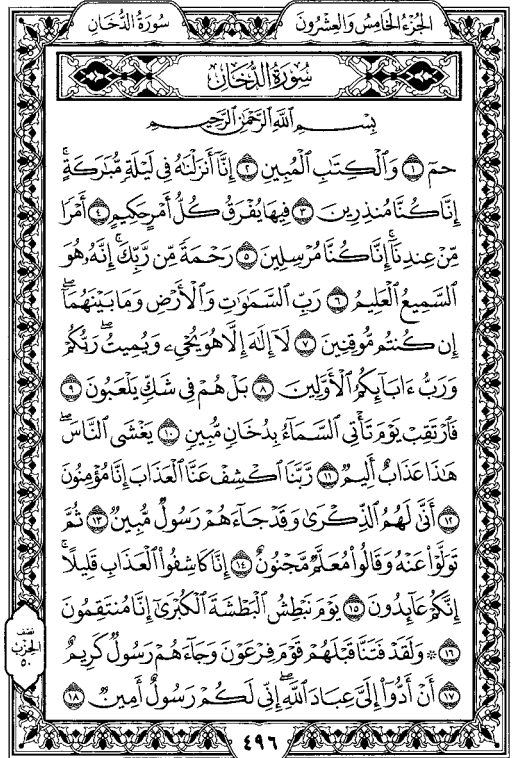 سُورَةُ الدُّخَانِ
الجُزْءُ الخَامِسُ وَالعِشْرُونَ
سُورَةُ الدُّخَانِ
بِسْمِ ٱللَّهِ ٱلرَّحْمَٰنِ ٱلرَّحِيمِ
حمٓ ١ وَٱلْكِتَٰبِ ٱلْمُبِينِ ٢ إِنَّآ أَنزَلْنَٰهُ فِى لَيْلَةٍ مُّبَٰرَكَةٍ ۚ
إِنَّا كُنَّا مُنذِرِينَ ٣ فِيهَا يُفْرَقُ كُلُّ أَمْرٍ حَكِيمٍ ٤ أَمْرًا
مِّنْ عِندِنَآ ۚ إِنَّا كُنَّا مُرْسِلِينَ ٥ رَحْمَةً مِّن رَّبِّكَ ۚ إِنَّهُۥ هُوَ
ٱلسَّمِيعُ ٱلْعَلِيمُ ٦ رَبِّ ٱلسَّمَٰوَٰتِ وَٱلْأَرْضِ وَمَا بَيْنَهُمَآ ۖ
إِن كُنتُم مُّوقِنِينَ ٧ لَآ إِلَٰهَ إِلَّا هُوَ يُحْىِۦ وَيُمِيتُ ۖ رَبُّكُمْ
وَرَبُّ ءَابَآئِكُمُ ٱلْأَوَّلِينَ ٨ بَلْ هُمْ فِى شَكٍّ يَلْعَبُونَ ٩
فَٱرْتَقِبْ يَوْمَ تَأْتِى ٱلسَّمَآءُ بِدُخَانٍ مُّبِينٍ ١٠ يَغْشَى ٱلنَّاسَ ۖ
هَٰذَا عَذَابٌ أَلِيمٌ ١١ رَّبَّنَا ٱكْشِفْ عَنَّا ٱلْعَذَابَ إِنَّا مُؤْمِنُونَ
١٢ أَنَّىٰ لَهُمُ ٱلذِّكْرَىٰ وَقَدْ جَآءَهُمْ رَسُولٌ مُّبِينٌ ١٣ ثُمَّ
تَوَلَّوْا۟ عَنْهُ وَقَالُوا۟ مُعَلَّمٌ مَّجْنُونٌ ١٤ إِنَّا كَاشِفُوا۟ ٱلْعَذَابِ قَلِيلًا ۚ
إِنَّكُمْ عَآئِدُونَ ١٥ يَوْمَ نَبْطِشُ ٱلْبَطْشَةَ ٱلْكُبْرَىٰٓ إِنَّا مُنتَقِمُونَ
١٦ ۞ وَلَقَدْ فَتَنَّا قَبْلَهُمْ قَوْمَ فِرْعَوْنَ وَجَآءَهُمْ رَسُولٌ كَرِيمٌ
١٧ أَنْ أَدُّوٓا۟ إِلَىَّ عِبَادَ ٱللَّهِ ۖ إِنِّى لَكُمْ رَسُولٌ أَمِينٌ ١٨
نصف
الحزب
٥٠
٤٩٦